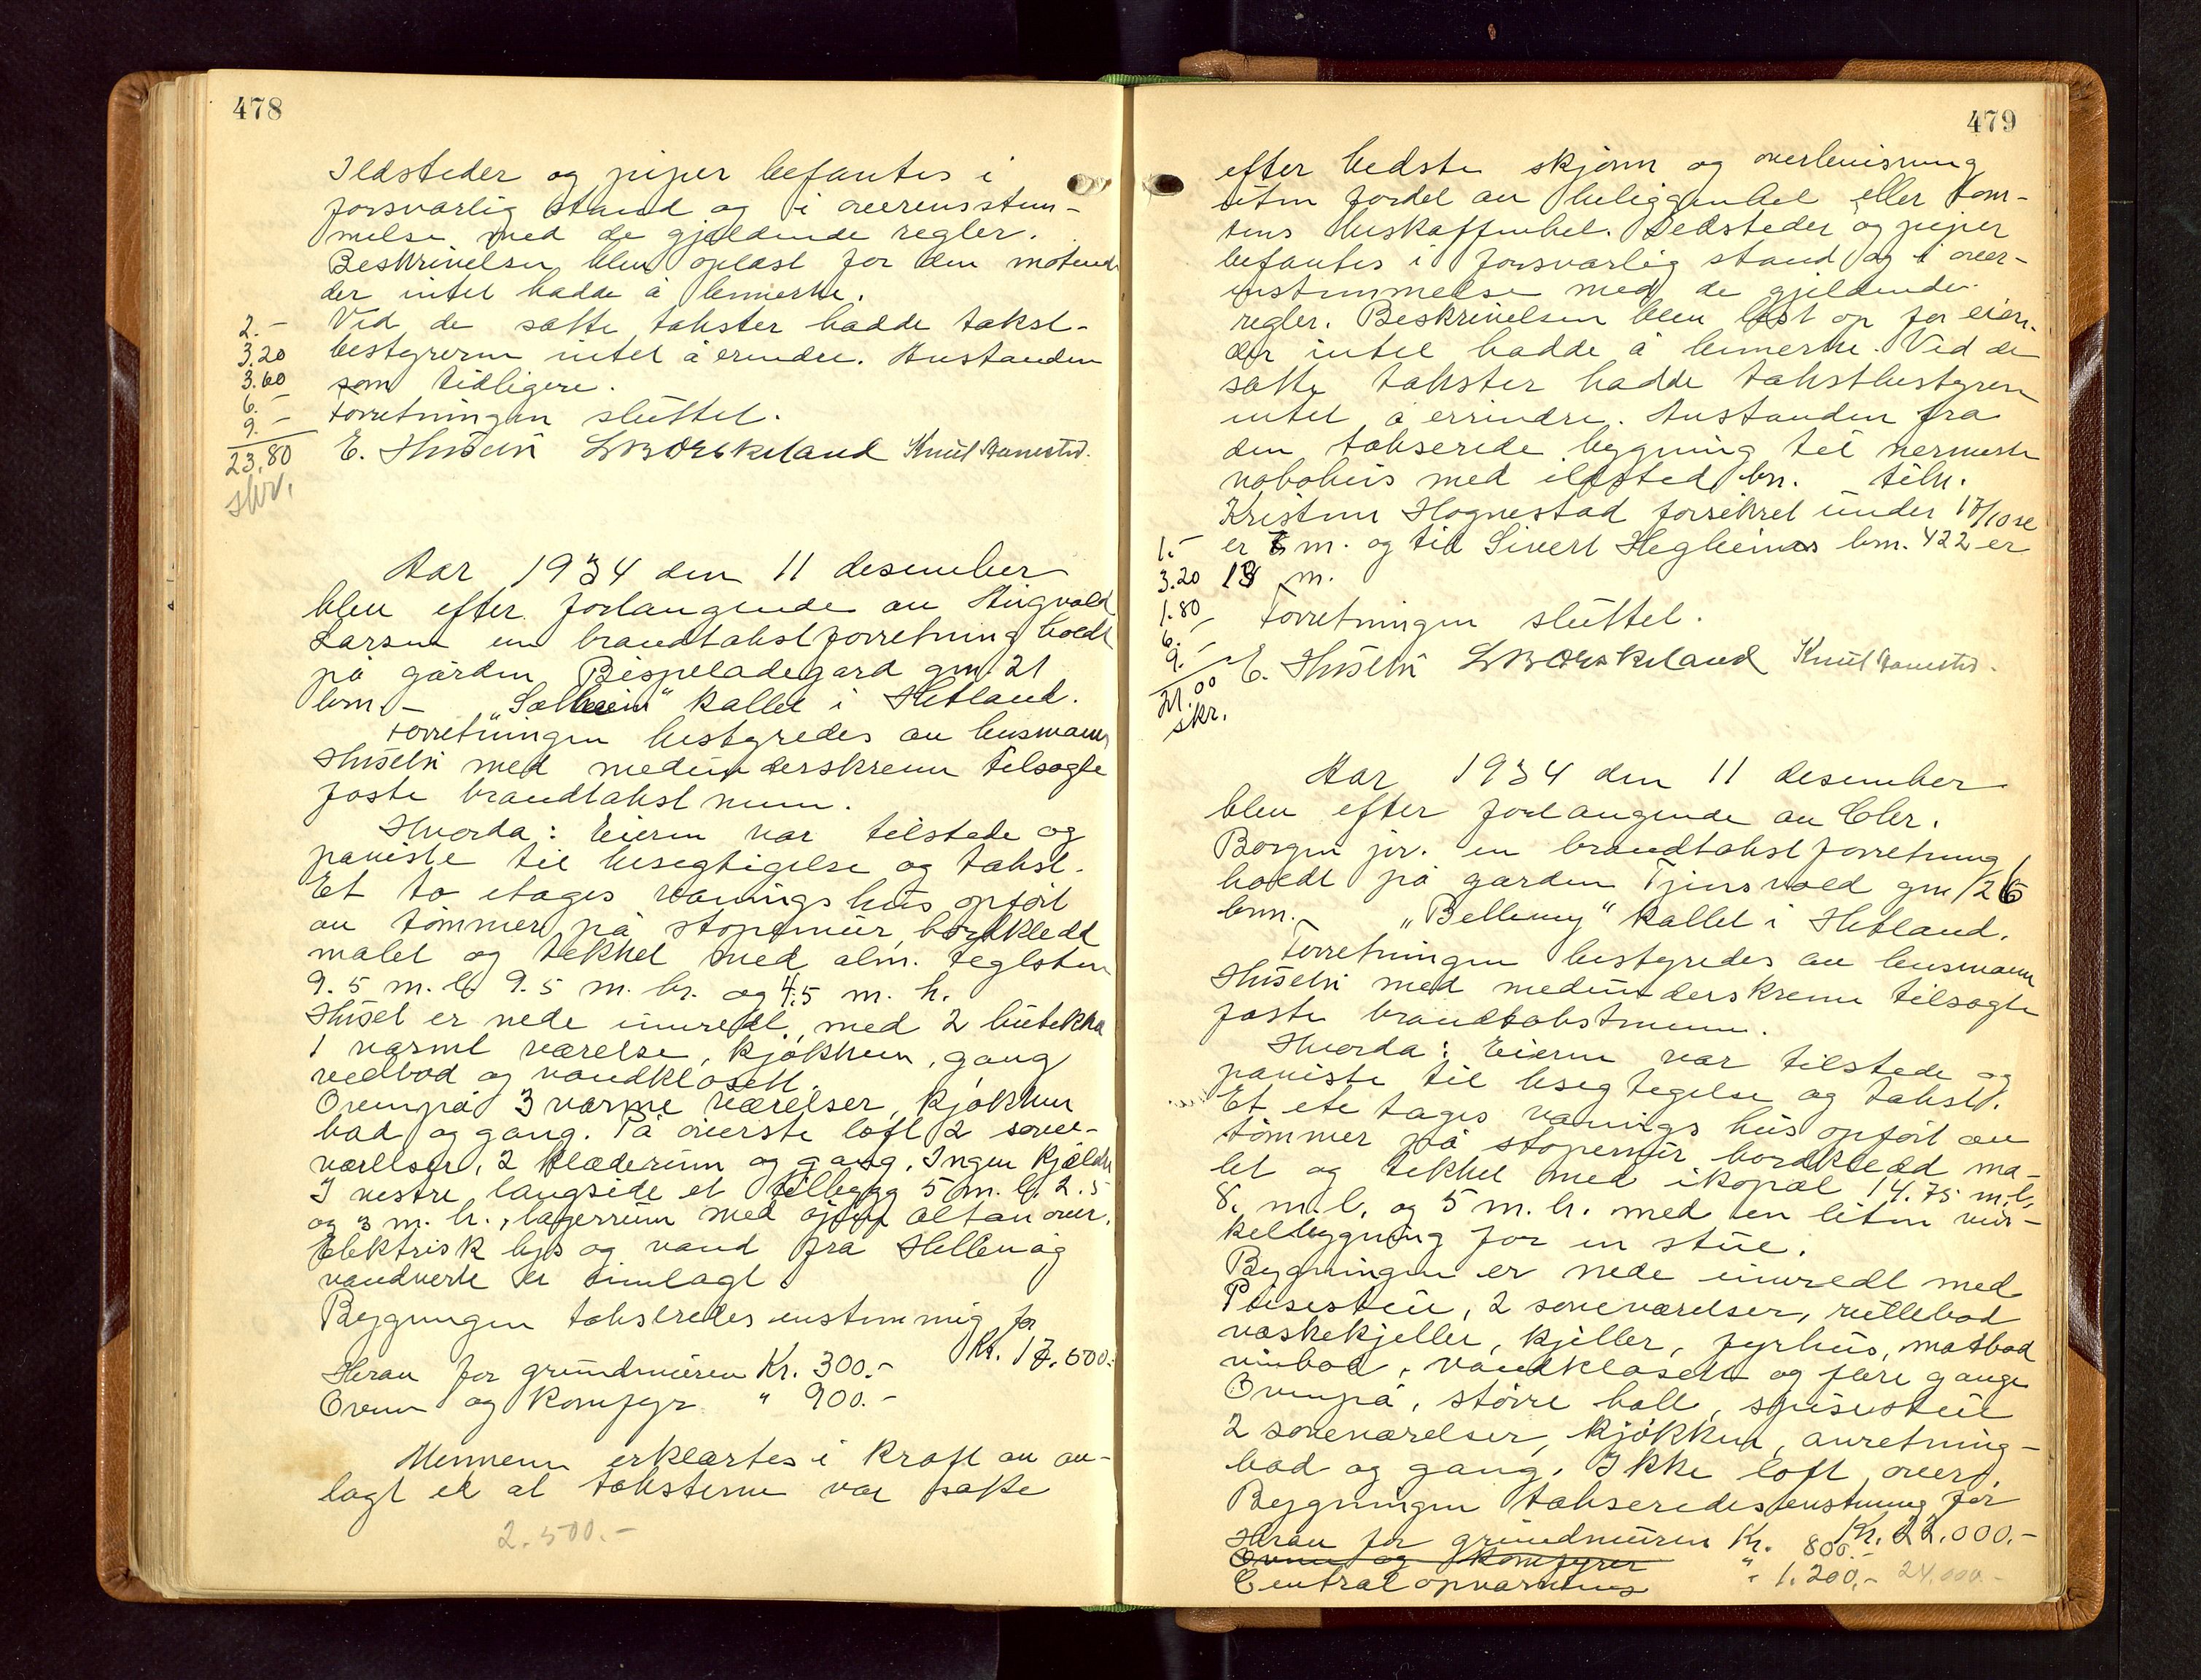 478
Ildsteder og piper befantes i
forsvarlig stand og i overensstem-
melse med de gjældende regler.
Beskrivelsen blev oplæst for den møtende
der intet hadde å bemerke.
2.- Ved de satte takster hadde takst-
3.20 bestyreren intet å erindre. Avstanden
3.60 som tidligere.
6.- Forretningen sluttet.
9.-
23,80 E. Husebø Knut
skr.
Aar 1934 den 11 desember
blev efter forlangende av Sigvald
Larsen en brandtakstforretning holdt
på gården Bispeladegard gnr. 21
bnr. - "Solheim" kallet i Hetland.
Forretningen bestyredes av lensmann
Husebø med medunderskrevne tilsagte
faste brandtakstmenn.
Hvorda: Eieren var tilstede og
paviste til besegtigelse og takst.
Et to etages vånings hus opført
av tømmer på støpemur, bordkledd
malet og tekket med alm. teglsten
9.5 m. l. 9.5 m. br. og 4.5 m. h.
Huset er nede innredt, med 2 butekker
1 varmt værelse, kjøkken, gang
vedbod og vandklosett.
Ovenpå 3 varme værelser, kjøkken
bad og gang. På øverste loft 2 sove-
værelser, 2 klæderum og gang. Ingen kjælder
I vestre langside et tilbygg 5 m. l. 2.5
og 3 m. br., lagerrum med åpen altan over.
Elektrisk lys og vand fra Hillevåg
vandverk er innlagt.
Bygningen takseredes enstemmig for
Kr. 17.500.-
Herav for grundmuren Kr. 300.-
Ovner og komfyr " 900.-
Mennene erklærtes i kraft av av-
lagt ed at taksterne var satte
2.500.-
479
efter bedste skjønn og overbevisning
uten fordel av beliggenhet eller tom-
tens beskaffenhet. Ildsteder og piper
befantes i forsvarlig stand og i over-
enstemmelse med de gjeldende
regler. Beskrivelsen blev læst op for eieren
der intet hadde å bemerke. Ved de
satte takster hadde takstbestyreren
intet å errindre. Avstanden fra
den takserede bygning til nermeste
nabohus med ildsted bn. tilh.
Kristine Hognestad forsikret under 17/10
1.- er 6 m. og til Sivert Hegheims bnr. 422 er
3.20 18 m.
1.80 Forretningen sluttet.
6.-
9.- E. Husebø Knut
21.00
skr.
Aar 1934 den 11 desember
blev efter forlangende av Chr.
Borgen jr. en brandtakstforretning
holdt på garden Tjensvold gnr. 26
bnr. - "Bellevuy" kallet i Hetland.
Forretningen bestyredes av lensmann
Husebø med medunderskrevne tilsagte
faste brandtakstmenn.
Hvorda: Eieren var tilstede og
paviste til besegtegelse og takst.
Et etetages vånings hus opført av
tømmer på støpemur bordkledd ma-
let og tekket med ikopal 14.75 m. l.
8. m. b. og 5 m. h. med en liten vin-
kelbygning for en stue.
Bygningen er nede innredt med
Peisestue, 2 soveværelser, rullebod
vaskekjeller, kjeller, fyrhus, matbod
vinbod, vandklosett og flere gange
Ovenpå, større hall, spisestue
2 soveværelser, kjøkken, anretning-
bad og gang. Ikke loft over.
Bygningen takseredes enstemmig for
Kr. 22.000.-
Herav for grundmuren Kr. 800.-
Ovner og komfyrer
Centralopvarming " 1.200.- 24.000.-